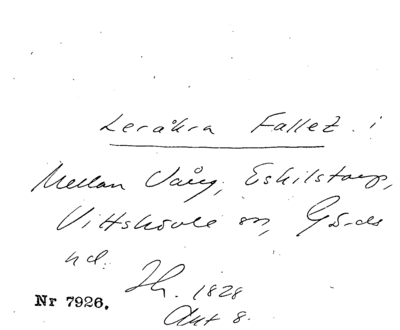 Leråkra Fallet i
Mellan Vång, Eskilstorp,
Vittskövle sn, Gärds
hd.
Sk. 1828
Akt 8.
Nr 7926.